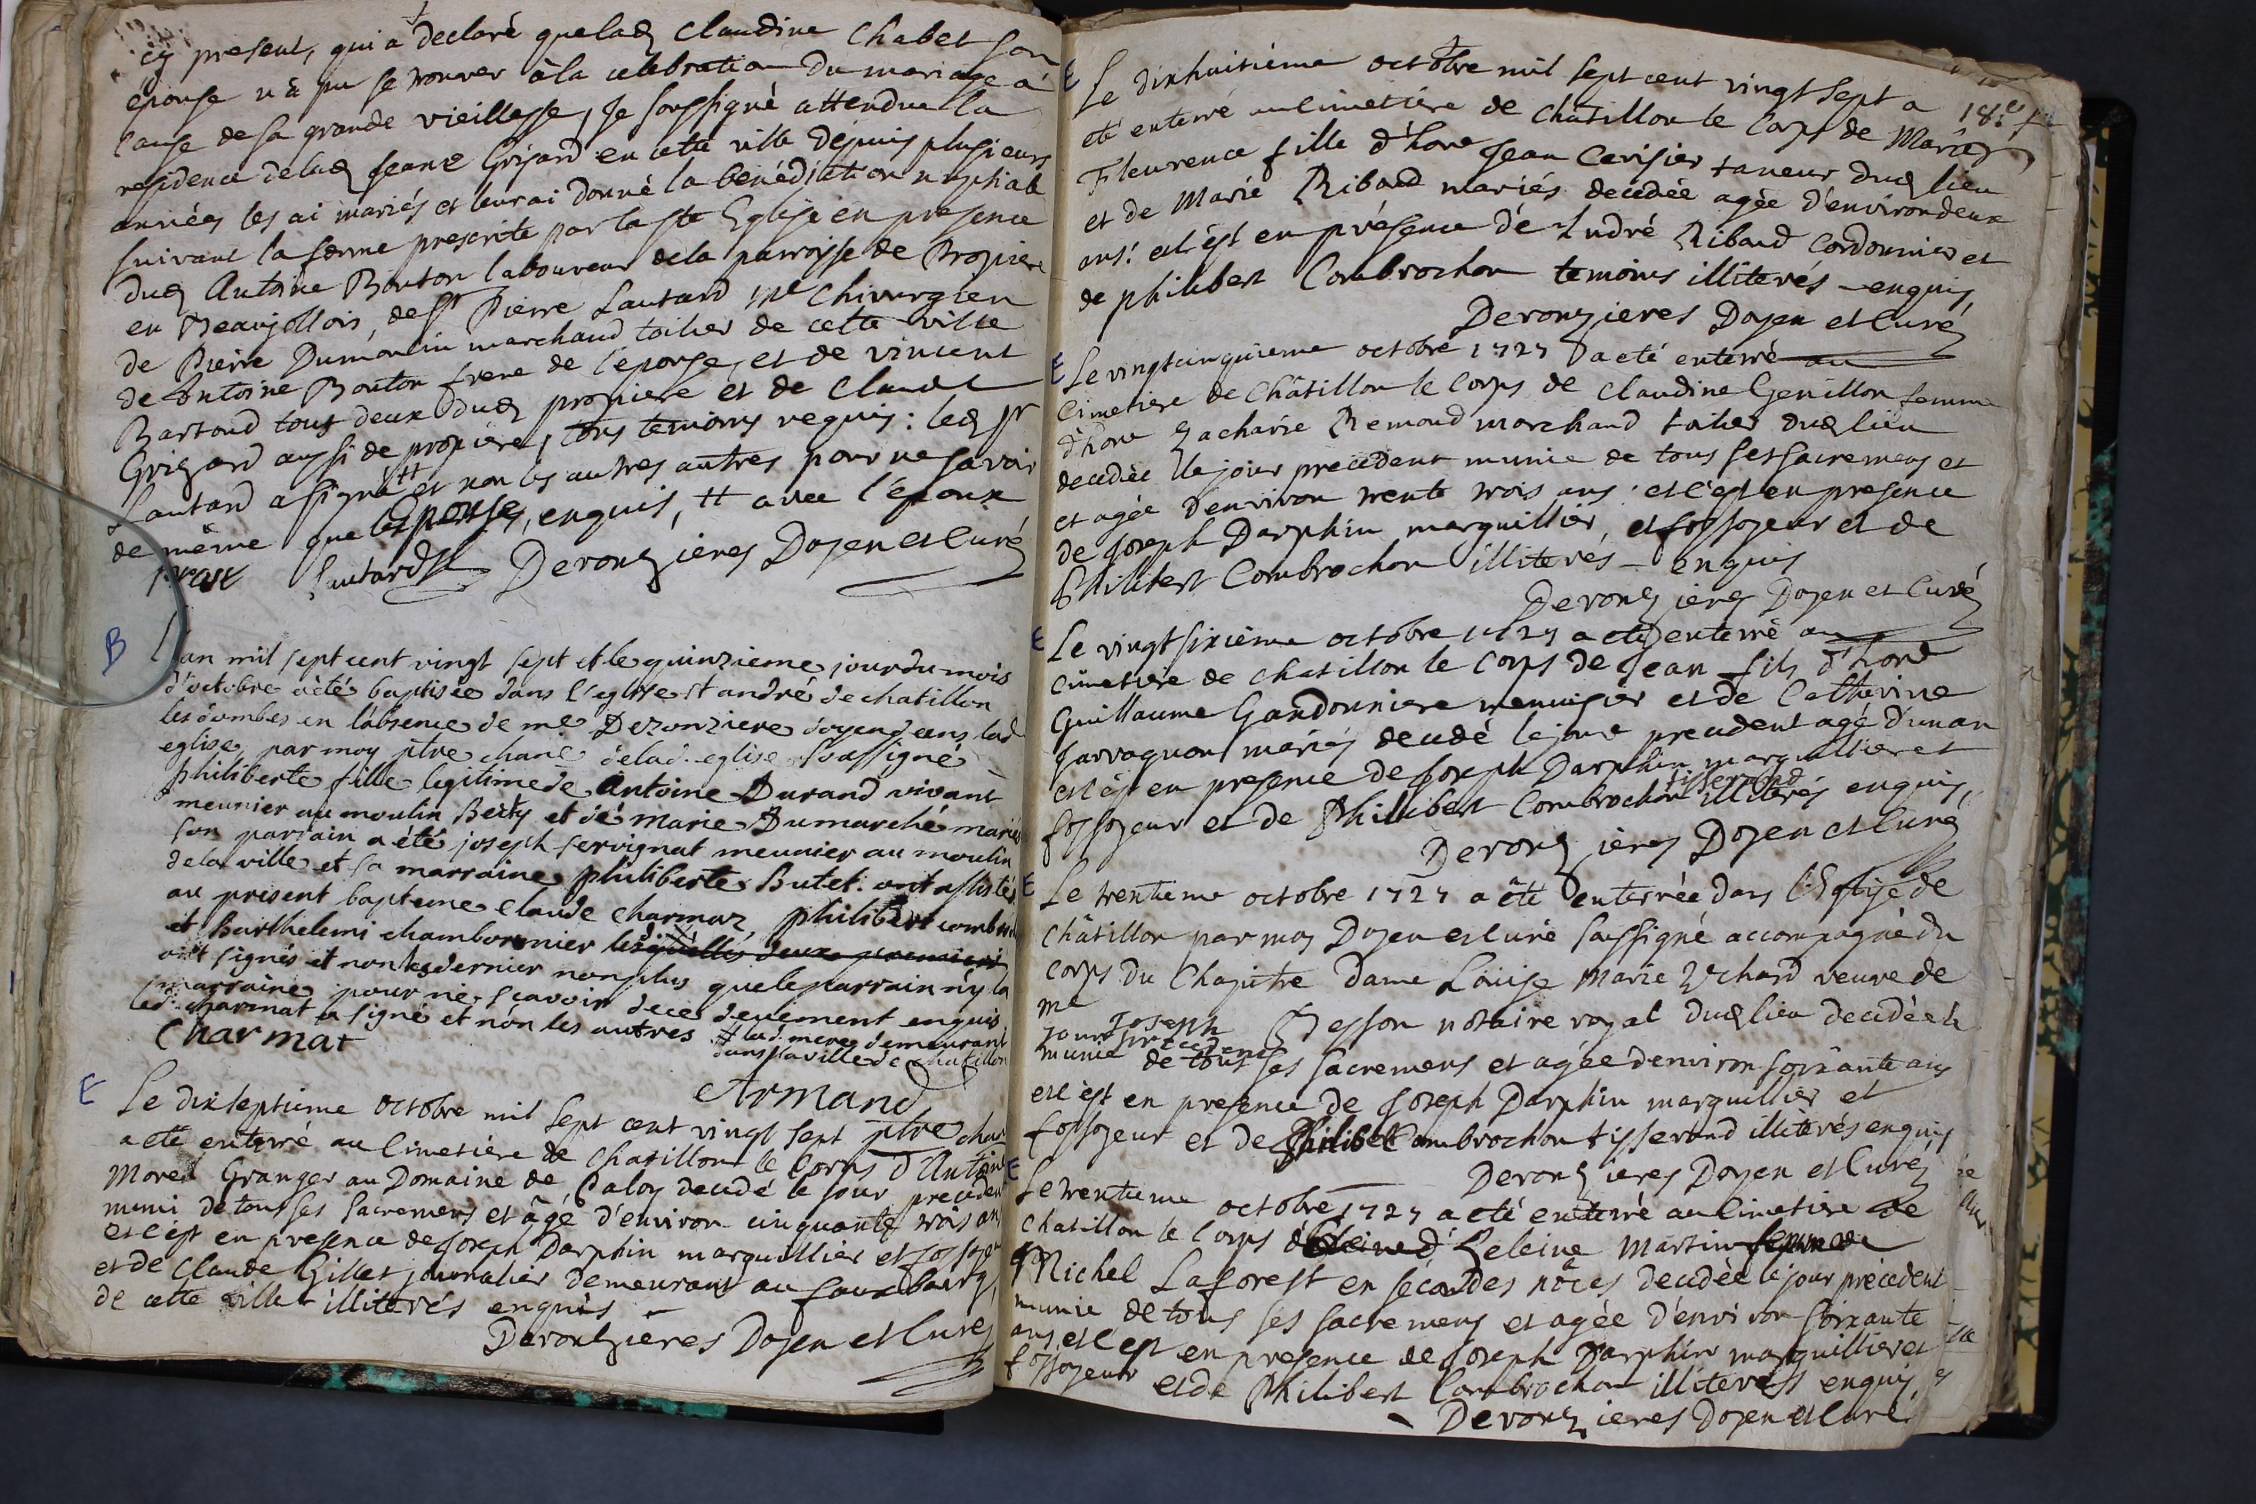 cy present, qui a declaré que lad Claudine Chabet son
epouse n'a pu se trouver à la celebration du mariage à
cause de sa grande vieillesse, Je soussigné attendue la
residence delad Jeane Grisard en cete ville depuis plusieurs
années les ai mariés et leur ai donné la benédiction nuptiale
suivant la forme prescrite par la ste Eglise en presence
dud Antoine Bouton laboureur dela parroisse de Propiere
en Beaujollois, de sr Pierre Lautard me Chirurgien
de Pierre Dumoulin marchand toilier de cette ville
de Antoine Bouton frere de l'epouse, et de vincent
Bartoud tous deux dud propiere et de Claude
Grizard aussi de propiere, tous temoins requis: led sr
Lautard a signé ++ et non les autres autres pour ne savoir
de même que l'Epouse, enquis, ++ avec l'epoux
Lautard Deronzieres Doyen et Curé
B
L'an mil sept cent vingt sept et le quinzieme jour du mois
d'octobre a été baptisée dans l'eglise st andré de chatillon
les dombes en l'absence de mre Deronziere doyen dans lad
eglise par moy ptre chane delad. eglise soussigné
philiberte fille legitime de Antoine Durand vivant
meunier au moulin Beity et de marie Dumarché mariés
son parrain a été joseph servignat meunier au moulin
dela ville et sa marraine philiberte Butet. ont assistés
au present bapteme claude charmaz, philibert combro
et Barthelemi chambornier lesquelles deux premiers
ont signés et non le dernier non plus que le parrain n'y la
marraine pour ne sçavoir de ce deuement enquis
led. charmat a signé et non les autres # lad. mere demeurant
dans la ville de chatillon
Charmat
Armand
ptre chan
E
Le dixseptieme octobre mil sept cent vingt sept
a eté enterré au Cimetière de Chatillon le Corps d'Antoine
Morel Granger au Domaine de Paloy decedé le jour precedent
muni de tous ses Sacremens et âgé d'environ cinquante trois ans
et c'est en presence de Joseph Darphin marguillier et fossoyeur
et de Claude Gillet journalier demeurant au fauxbourg,
de cette ville illiterés enquis
Deronzières Doyen et Curé
E
Le dixhuitième octobre mil sept cent vingt sept a
eté enterré au cimetière de châtillon le Corps de Marie
Fleurence fille d'hone Jean Cerisier taneur dud lieu
et de Marie Ribaud mariés decedée agée d'environ deux
ans: et c'est en présence de André Ribaud Cordonnier et
de philibert Combrochon temoins illiterés enquis,
Deronzieres Doyen et Curé
E
Le vingtcinquieme octobre 1727 a eté enterré au
Cimetiere de Châtillon le Corps de Claudine Genillon femme
d'hone Zacharie Remond marchand toilier dud lieu
decedée le jour precedent munie de tous ses sacremens et
et agée d'environ trente trois ans et c'est en presence
de Joseph Darphin marguillier et fossoyeur et de
Philibert Combrochon illiterés enquis
Deronzieres Doyen et Curé
E
Le vingt sixième octobre 1727 a eté enterré au
Cimetiere de chatillon le Corps de Jean fils d'hone
Guillaume Gandonniere menuisier et de Catherine
Jarvaquon mariés decedé le jour precedent agé d'un an
et c'est en presence de Joseph Darphin marguillier et
fossoyeur et de Philibert Combrochon tisserand illiterés enquis,
Deronzieres Doyen et Curé
E
Le trentieme octobre 1727 a été enterrée dans l'Eglise de
Châtillon par moy Doyen et Curé soussigné accompagné du
Corps du Chapitre Dame Loüise Marie Vechard veuve de
me Joseph Besson notaire royal dud lieu decedée le
jour precedent
munie de tous ses sacremens et agée d'environ soixante ans
et c'est en presence de Joseph Darphin marguillier et
fossoyeur et de Philibert Combrochon tisserand illitérés enquis
Deronzieres Doyen et Curé
E
Le trentieme octobre 1727 a eté enterré au Cimetiere de
chatillon le Corps de Heleine Martin femme de
Michel Laforest en secondes nôces decedée le jour précedent
munie de tous ses sacremens et agée d'environ soixante
ans et c'est en presence de Joseph Darphin marguillier et
fossoyeur et de Philibert Combrochon illiterés enquis,
Deronzieres Doyen et Curé